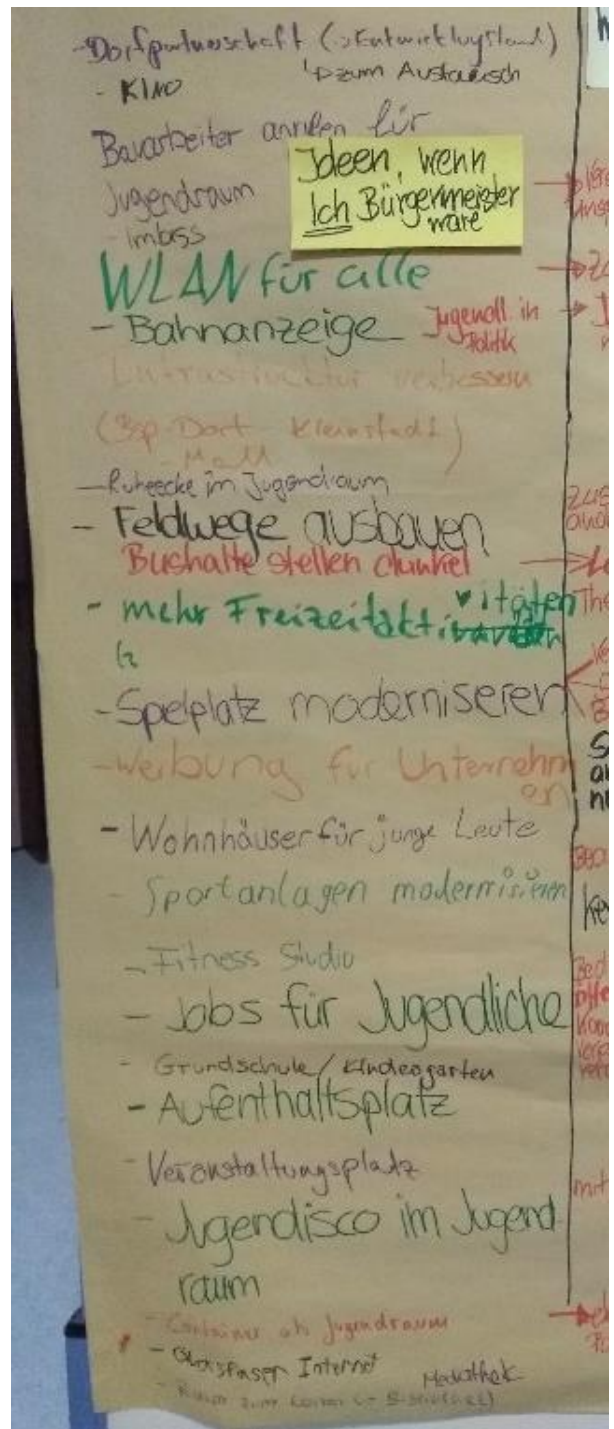 -Dorfpartnerschaft (→Entwicklungsland)
↳ zum Austausch
- KINO
Bauarbeiter anrufen für
Jugendraum
- Imbiss
Ideen, wenn
Ich Bürgermeister
wäre
WLAN für alle
- Bahnanzeige
Jugendl in
Politik
Infrastruktur verbessern
(Bsp. Dorf - Kleinstadt)
- Mall
- Ruheecke im Jugendraum
- Feldwege ausbauen
Bushaltestellen dunkel
- mehr Freizeitaktivitäten
- Spielplatz moderniseren
- Werbung für Unternehm
en
- Wohnhäuser für junge Leute
- Sportanlagen modernisieren
- Fitness Studio
- Jobs für Jugendliche
- Grundschule / Kindergarten
- Aufenthaltsplatz
- Veranstaltungsplatz
- Jugendisco im Jugend
raum
- Container als Jugendraum
- Glasfaser Internet
Mediathek
- Raum zum Lernen
mit